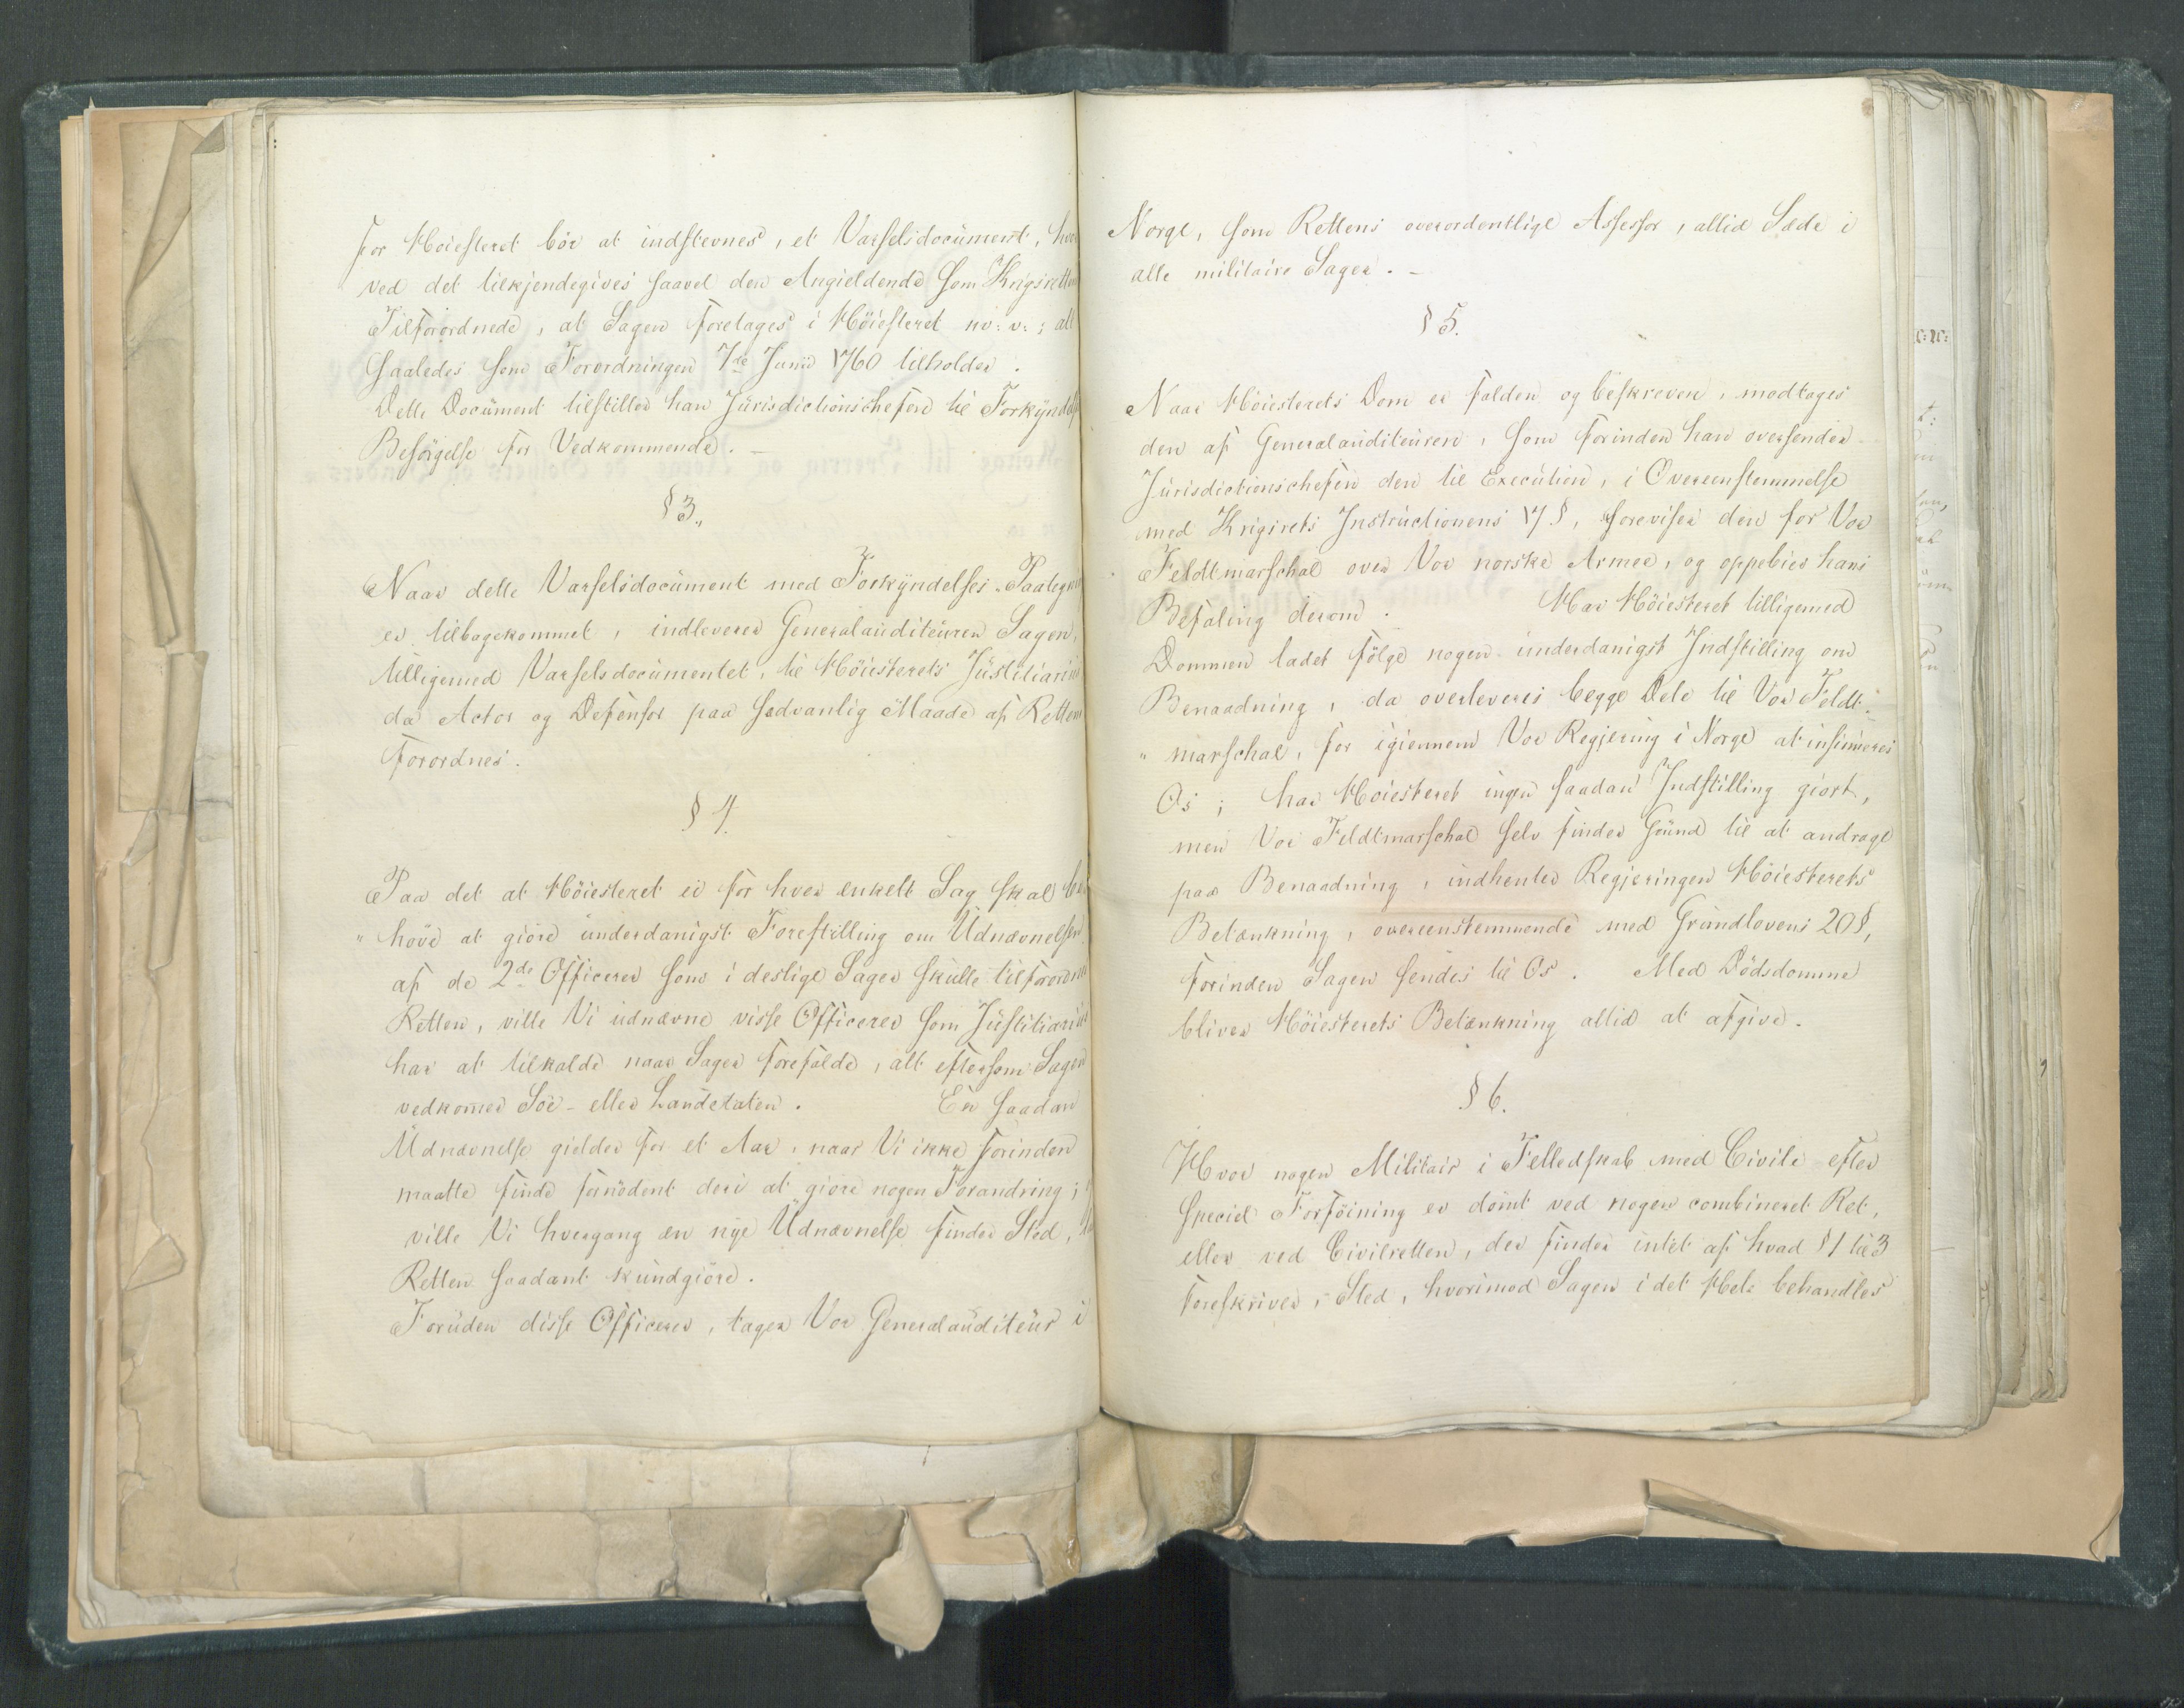 for Höiesteret bör at indstevnes, et Varselsdocüment, hvor
ved det tilkjendegives saavel den Angieldende som Krigsretten
Tilforordnede, at Sagen foretages i Höiesteret m: v: ; alt
saaledes som Forordningen 7de Junii 1760 tilholder.
Dette Document tilstiller han Jürisdictionschefen til Forkyndelse
Besörgelse for Vedkommende. —
§ 3.
Naar dette Varselsdocüment med Forkyndelses-Paategn
er tilbagekommet, indleverer Generalaüditeüren Sagen,
tilligemed Varselsdocümentet, til Höiesterets Jüstitiarius
da Actor og Defensor paa sædvanlig Maade af Retten
forordnes.
§ 4.
Paa det at Höiesteret ei for hver enkelt Sag skal be
" höve at giöre ünderdanigst Forestilling om Üdnævnelsen
af de 2de Officerer som i deslige Sager skülle tilforordnes
Retten, ville Vi üdnævne visse Officerer som Jüstitiarius
har at tilkalde naar Sager forefalde, alt eftersom Sagen
vedkom̄er Söe- eller Landetaten. En saadan
Üdnævnelse gielder for et Aar, naar Vi ikke forinden
maatte finde fornödent deri at giöre nogen Forandring;
ville Vi hvergang en nye Üdnævnelse finder Sted,
Retten saadant kündgiöre.
Forüden disse Officerer, tager Vor Generalaüditeür i
Norge, som Rettens overordentlige Assessor, altid Sæde i
alle militaire Sager. —
§ 5.
Naar Höiesterets Dom er falden og beskreven, modtages
den af Generalaüditeüren, som forinden han oversender
Jürisdictionschefen den til Execütion, i Overeenstemmelse
med Krigsrets Instructionens 17 §, foreviser den for Vor
Feldtmarschal over Vor norske Armee, og oppebier hans
Befaling derom. Har Höiesteret tilligemed
Dommen ladet fölge nogen ünderdanigst Indstilling om
Benaadning, da overleveres begge Dele til Vor Feldt-
" marschal, for igiennem Vor Regjering i Norge at insinüeres
Os; har Höiesteret ingen saadan Indstilling giort,
men Vor Feldtmarschal selv finder Gründ til at andrage
paa Benaadning, indhenter Regjeringen Höiesterets
Betænkning, overeenstemmende med Gründlovens 20 §,
forinden Sagen sendes til Os. Med Dödsdomme
bliver Höiesterets Betænkning altid at afgive.
§ 6.
Hvor nogen Militair i Felledskab med Civile efter
speciel Forföining er dömt ved nogen combineret Ret,
eller ved Civilretten, der finder intet af hvad § 1 til 3
foreskriver, Sted, hvorimod Sagen i det Hele behandles